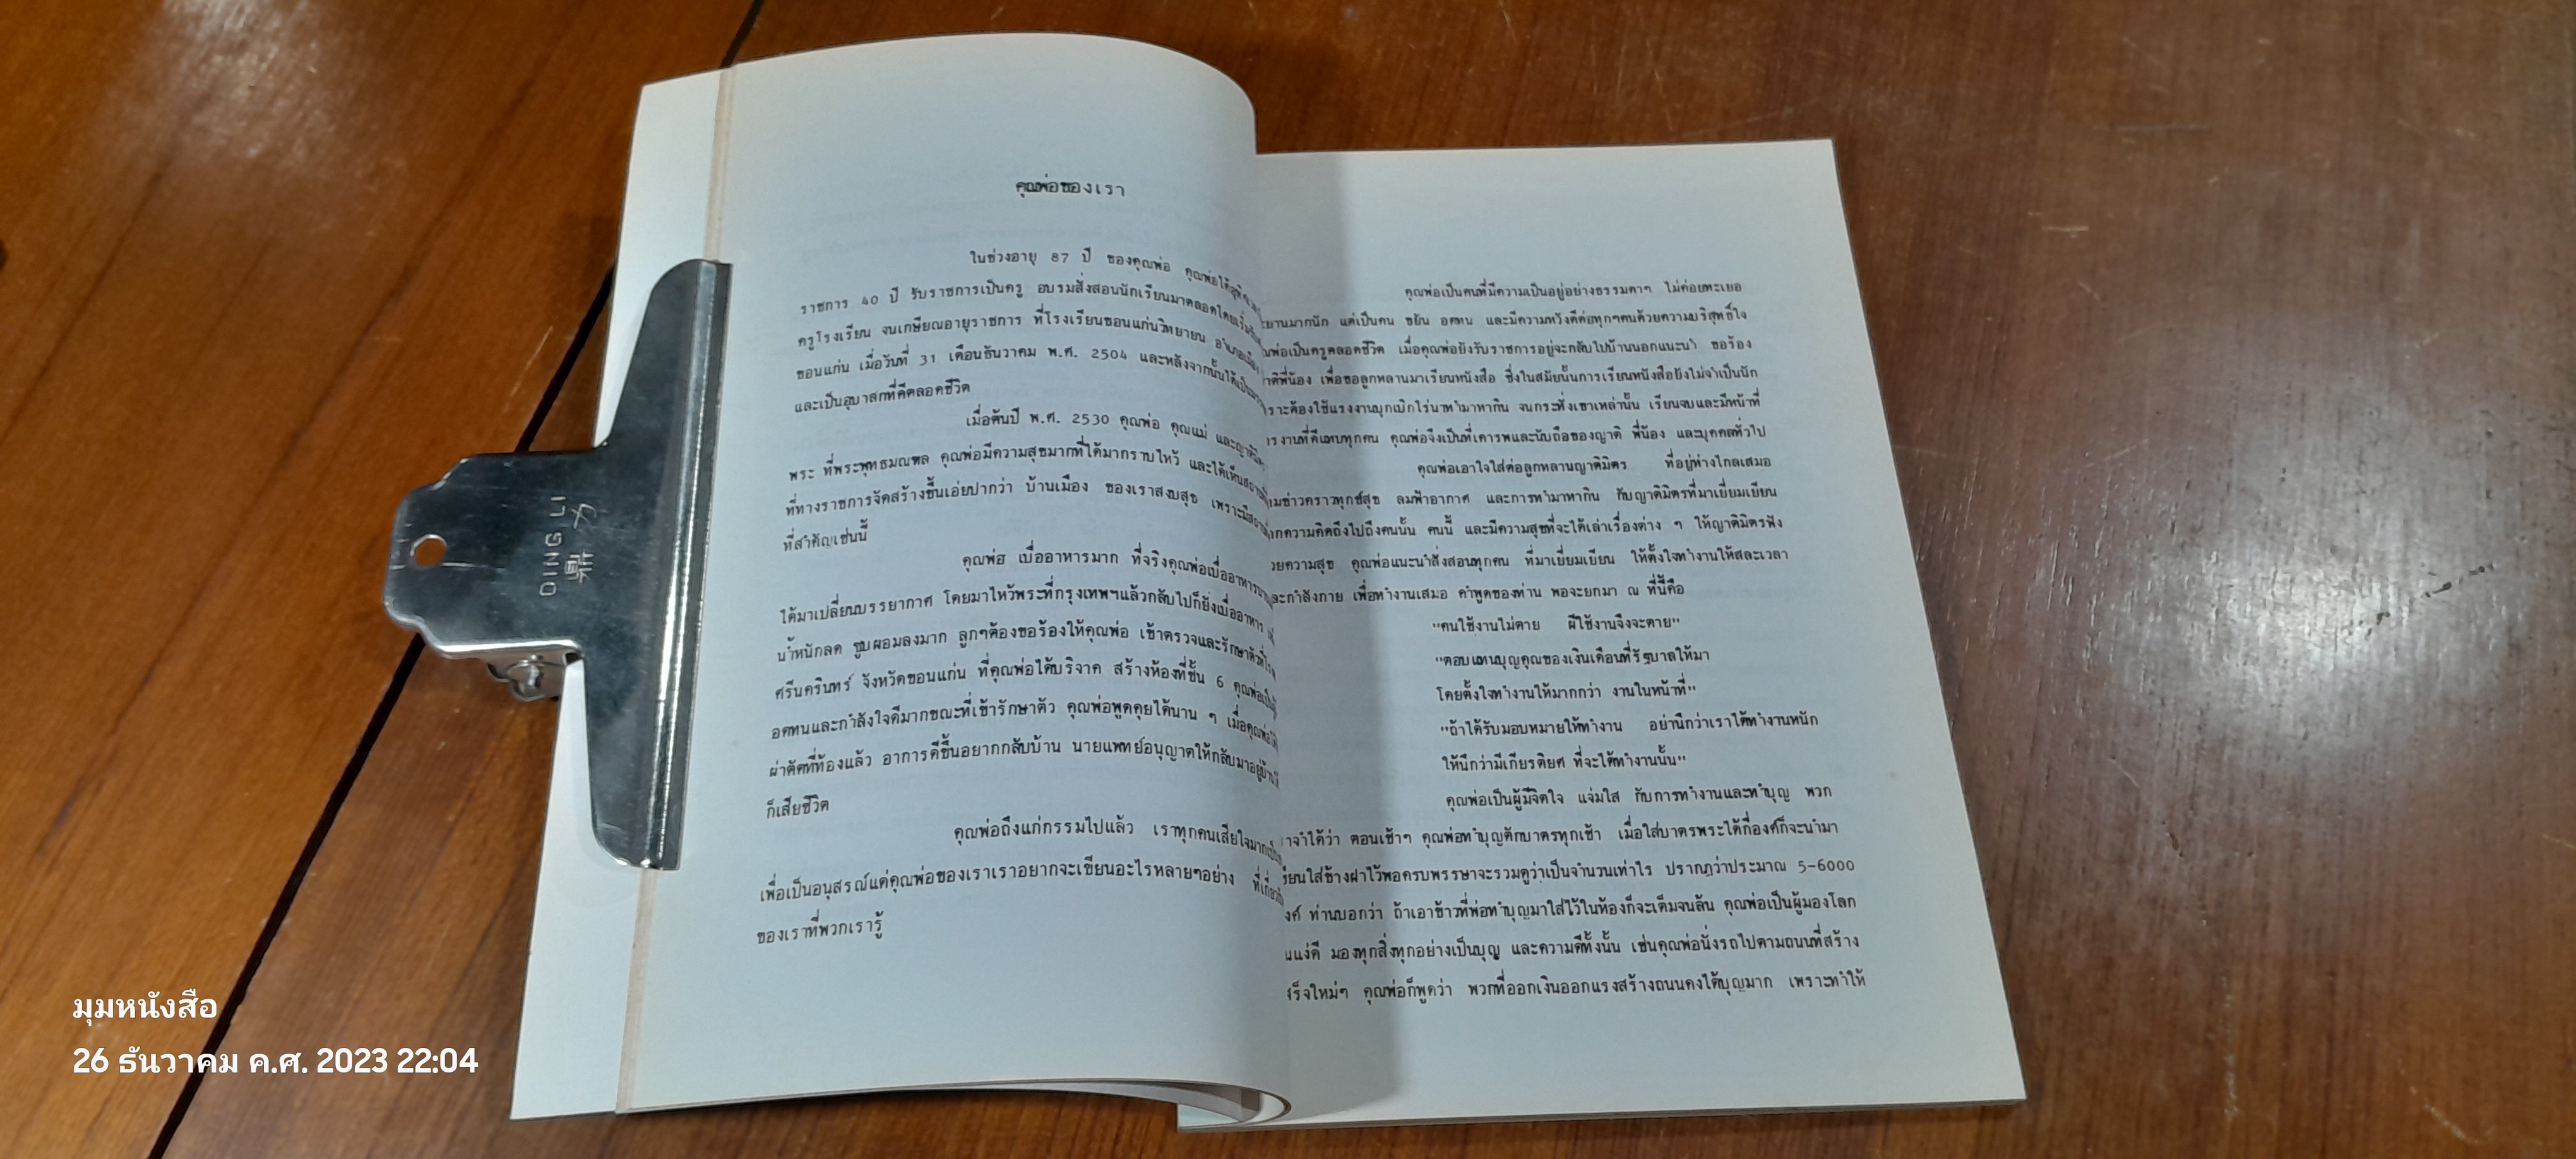 คุณพ่อของเรา
ในช่วงอายุ 87 ปี ของคุณพ่อ คุณพ่อได้
ราชการ 40 ปี รับราชการเป็นครู อบรมสั่งสอนนักเรียนมาตลอดโดยเริ่ม
ครูโรงเรียน จนเกษียณอายุราชการ ที่โรงเรียนขอนแก่นวิทยายน อำเภอเมือง
ขอนแก่น เมื่อวันที่ 31 เดือนธันวาคม พ.ศ. 2504 และหลังจากนั้นได้เป็น
และเป็นอุบาสกที่ดีตลอดชีวิต
เมื่อต้นปี พ.ศ. 2530 คุณพ่อ คุณแม่ และญาติ
พระ ที่พระพุทธมณฑล คุณพ่อมีความสุขมากที่ได้มากราบไหว้ และได้เห็น
ที่ทางราชการจัดสร้างขึ้นเอ่ยปากว่า บ้านเมือง ของเราสงบสุข เพราะมี
ที่สำคัญเช่นนี้
คุณพ่อ เบื่ออาหารมาก ที่จริงคุณพ่อเบื่ออาหาร
ได้มาเปลี่ยนบรรยากาศ โดยมาไหว้พระที่กรุงเทพฯแล้วกลับไปก็ยังเบื่ออาหาร
น้ำหนักลด ซูบผอมลงมาก ลูกๆต้องขอร้องให้คุณพ่อ เข้าตรวจและรักษาตัวที่
ศรีนครินทร์ จังหวัดขอนแก่น ที่คุณพ่อได้บริจาค สร้างห้องที่ชั้น 6 คุณพ่อ
อดทนและกำลังใจดีมากขณะที่เข้ารักษาตัว คุณพ่อพูดคุยได้นาน ๆ เมื่อคุณพ่อ
ผ่าตัดที่ท้องแล้ว อาการดีขึ้นอยากกลับบ้าน นายแพทย์อนุญาตให้กลับมาอยู่บ้าน
ก็เสียชีวิต
คุณพ่อถึงแก่กรรมไปแล้ว เราทุกคนเสียใจมาก
เพื่อเป็นอนุสรณ์แด่คุณพ่อของเราเราอยากจะเขียนอะไรหลายๆอย่าง ที่เกี่ยวกับ
ของเราที่พวกเรารู้
คุณพ่อเป็นคนที่มีความเป็นอยู่อย่างธรรมดาๆ ไม่ค่อยทะเยอ
ะยานมากนัก แต่เป็นคน ขยัน อดทน และมีความหวังดีต่อทุกๆคนด้วยความบริสุทธิ์ใจ
ณพ่อเป็นครูตลอดชีวิต เมื่อคุณพ่อยังรับราชการอยู่จะกลับไปบ้านนอกแนะนำ ขอร้อง
าติพี่น้อง เพื่อขอลูกหลานมาเรียนหนังสือ ซึ่งในสมัยนั้นการเรียนหนังสือยังไม่จำเป็นนัก
ราะต้องใช้แรงงานบุกเบิกไร่นาทำมาหากิน จนกระทั่งเขาเหล่านั้น เรียนจบและมีหน้าที่
ารงานที่ดีแทบทุกคน คุณพ่อจึงเป็นที่เคารพและนับถือของญาติ พี่น้อง และบุคคลทั่วไป
คุณพ่อเอาใจใส่ต่อลูกหลานญาติมิตร ที่อยู่ห่างไกลเสมอ
ามข่าวคราวทุกข์สุข ลมฟ้าอากาศ และการทำมาหากิน กับญาติมิตรที่มาเยี่ยมเยียน
ากความคิดถึงไปถึงคนนั้น คนนี้ และมีความสุขที่จะได้เล่าเรื่องต่าง ๆ ให้ญาติมิตรฟัง
วยความสุข คุณพ่อแนะนำสั่งสอนทุกคน ที่มาเยี่ยมเยียน ให้ตั้งใจทำงานให้สละเวลา
ละกำลังกาย เพื่อทำงานเสมอ คำพูดของท่าน พอจะยกมา ณ ที่นี้คือ
"คนใช้งานไม่ตาย ผีใช้งานจึงจะตาย"
"ตอบแทนบุญคุณของเงินเดือนที่รัฐบาลให้มา
โดยตั้งใจทำงานให้มากกว่า งานในหน้าที่"
"ถ้าได้รับมอบหมายให้ทำงาน อย่านึกว่าเราได้ทำงานหนัก
ให้นึกว่ามีเกียรติยศ ที่จะได้ทำงานนั้น"
คุณพ่อเป็นผู้มีจิตใจ แจ่มใส กับการทำงานและทำบุญ พวก
าจำได้ว่า ตอนเช้าๆ คุณพ่อทำบุญตักบาตรทุกเช้า เมื่อใส่บาตรพระได้กี่องค์ก็จะนำมา
ขียนใส่ข้างฝาไว้พอครบพรรษาจะรวมดูว่าเป็นจำนวนเท่าไร ปรากฏว่าประมาณ 5-6000
งค์ ท่านบอกว่า ถ้าเอาข้าวที่พ่อทำบุญมาใส่ไว้ในห้องก็จะเต็มจนล้น คุณพ่อเป็นผู้มองโลก
นแง่ดี มองทุกสิ่งทุกอย่างเป็นบุญ และความดีทั้งนั้น เช่นคุณพ่อนั่งรถไปตามถนนที่สร้าง
สร็จใหม่ๆ คุณพ่อก็พูดว่า พวกที่ออกเงินออกแรงสร้างถนนคงได้บุญมาก เพราะทำให้
DING LI
鼎力
มุมหนังสือ
26 ธันวาคม ค.ศ. 2023 22:04